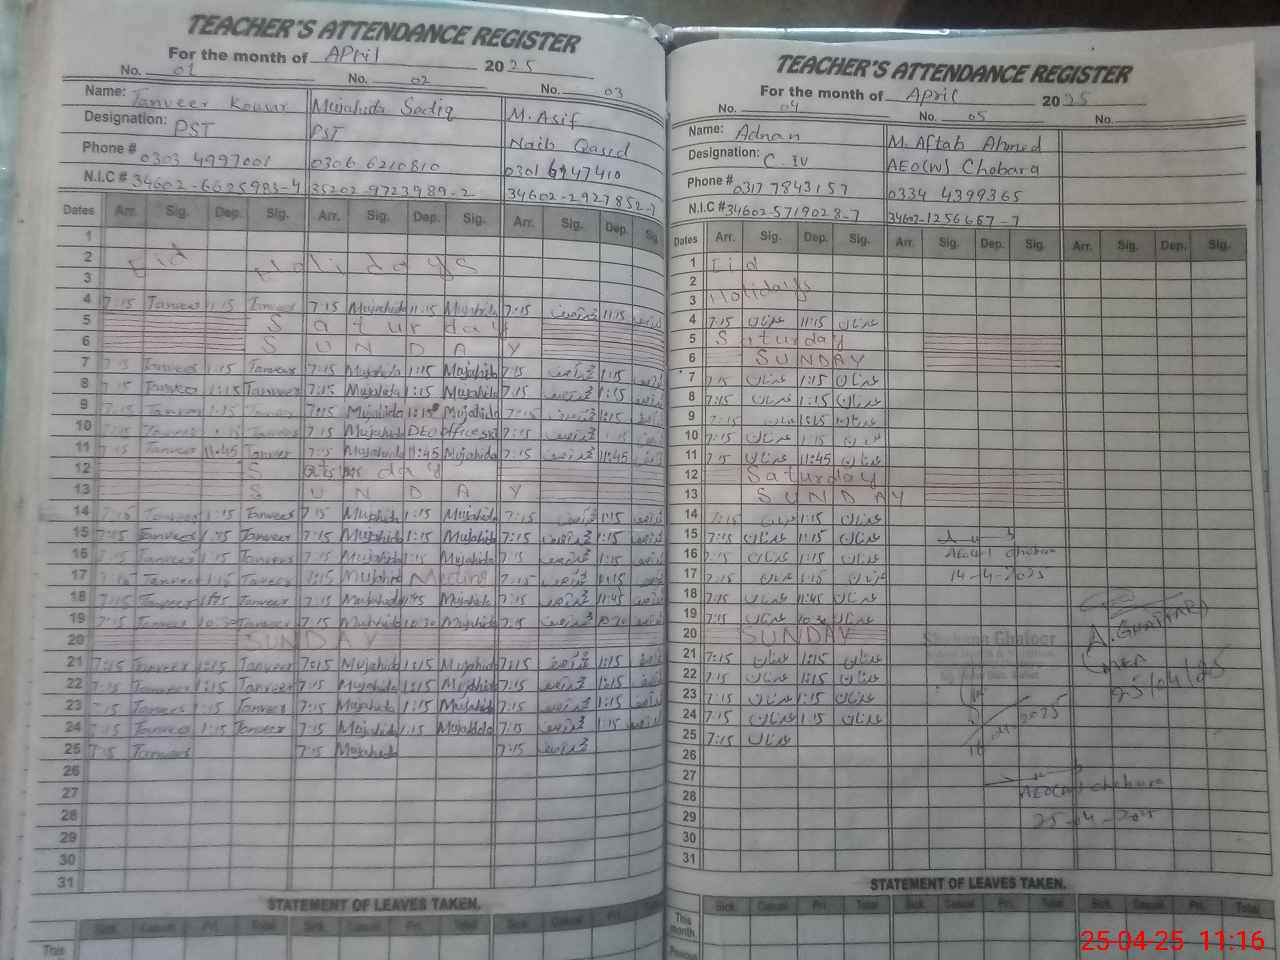 TEACHER'S ATTENDANCE REGISTER
For the month of APril 2025
No. 01 No. 02 No. 03
Name: Tanveer Kousar Mujahida Sadiq M. Asif
Designation: PST PST Naib Qasid
Phone # 0303 4997001 0306 6210810 0301 6947410
N.I.C # 34602-6625983-4 35202-9723989-2 34602-2927852-7
Dates Arr. Sig. Dep. Sig. Arr. Sig. Dep. Sig. Arr. Sig. Dep. Sig.
1
2 Eid Holidays
3
4 7:15 Tanveer 11:15 Tanveer 7:15 Mujahida 11:15 Mujahida 7:15 11:15
5 Saturday
6 SUNDAY
7 7:15 Tanveer 1:15 Tanveer 7:15 Mujahida 1:15 Mujahida 7:15 1:15
8 7:15 Tanveer 1:15 Tanveer 7:15 Mujahida 1:15 Mujahida 7:15 1:15
9 7:15 Tanveer 1:15 Tanveer 7:15 Mujahida 1:15 Mujahida 7:15 1:15
10 7:15 Tanveer 1:15 Tanveer 7:15 Mujahida DEO office 7:15
11 7:15 Tanveer 11:45 Tanveer 7:15 Mujahida 11:45 Mujahida 7:15 11:45
12 Saturday
13 SUNDAY
14 7:15 Tanveer 1:15 Tanveer 7:15 Mujahida 1:15 Mujahida 7:15 1:15
15 7:15 Tanveer 1:15 Tanveer 7:15 Mujahida 1:15 Mujahida 7:15 1:15
16 7:15 Tanveer 1:15 Tanveer 7:15 Mujahida 1:15 Mujahida 7:15 1:15
17 7:15 Tanveer 1:15 Tanveer 7:15 Mujahida Meeting 7:15 1:15
18 7:15 Tanveer 11:45 Tanveer 7:15 Mujahida 11:45 Mujahida 7:15 11:45
19 7:15 Tanveer 10:30 Tanveer 7:15 Mujahida 10:30 Mujahida 7:15 10:30
20 SUNDAY
21 7:15 Tanveer 1:15 Tanveer 7:15 Mujahida 1:15 Mujahida 7:15 1:15
22 7:15 Tanveer 1:15 Tanveer 7:15 Mujahida 1:15 Mujahida 7:15 1:15
23 7:15 Tanveer 1:15 Tanveer 7:15 Mujahida 1:15 Mujahida 7:15 1:15
24 7:15 Tanveer 1:15 Tanveer 7:15 Mujahida 1:15 Mujahida 7:15 1:15
25 7:15 Tanveer 7:15 Mujahida 7:15
26
27
28
29
30
31
STATEMENT OF LEAVES TAKEN.
Sick. Casual Pri. Total Sick. Casual Pri. Total Sick. Casual Pri. Total
This
TEACHER'S ATTENDANCE REGISTER
For the month of April 2025
No. 04 No. 05 No.
Name: Adnan M. Aftab Ahmed
Designation: C IV AEO(W) Chobara
Phone # 0317 7843157 0334 4399365
N.I.C # 34602-5719028-7 34602-1256667-7
Dates Arr. Sig. Dep. Sig. Arr. Sig. Dep. Sig. Arr. Sig. Dep. Sig.
1 Eid
2
3 Holidays
4 7:15 عدنان 11:15 عدنان
5 Saturday
6 SUNDAY
7 7:15 عدنان 1:15 عدنان
8 7:15 عدنان 1:15 عدنان
9 7:15 عدنان 1:15 عدنان
10 7:15 عدنان 1:15 عدنان
11 7:15 عدنان 11:45 عدنان
12 Saturday
13 SUNDAY
14 7:15 عدنان 1:15 عدنان
15 7:15 عدنان 1:15 عدنان
16 7:15 عدنان 1:15 عدنان AEO(w) chobara
17 7:15 عدنان 1:15 عدنان 14-4-2025
18 7:15 عدنان 11:45 عدنان
19 7:15 عدنان 10:30 عدنان A. GHAFFAR
20 SUNDAY
21 7:15 عدنان 1:15 عدنان MEA
22 7:15 عدنان 1:15 عدنان 25/04/25
23 7:15 عدنان 1:15 عدنان
24 7:15 عدنان 1:15 عدنان
25 7:15 عدنان
26
27
28 AEO(w) chobara
29 25-4-2025
30
31
STATEMENT OF LEAVES TAKEN.
Sick. Casual Pri. Total Sick. Casual Pri. Total Sick. Casual Pri. Total
This month
Previous
25-04-25 11:16